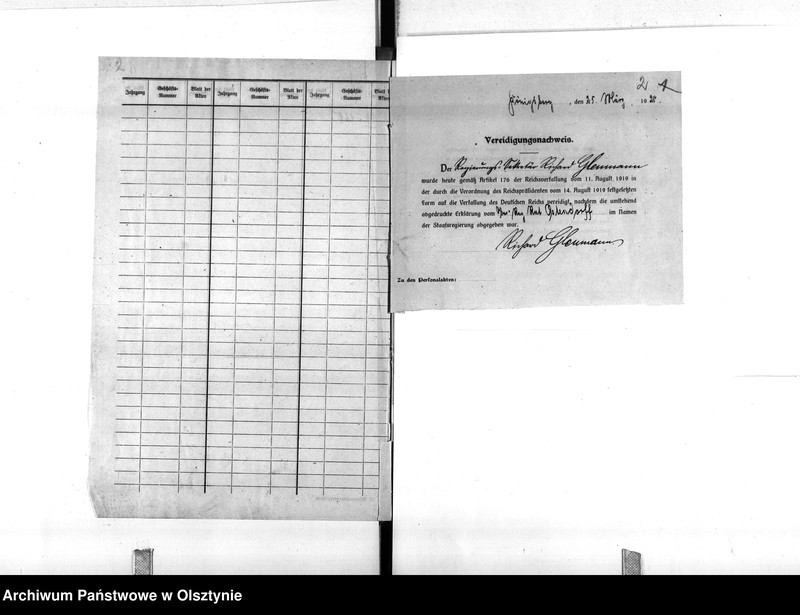 2
Jahrgang Geschäfts-Nummer Blatt der Akten Jahrgang Geschäfts-Nummer Blatt der Akten Jahrgang Geschäfts-Nummer Blatt der
2
Königsberg, den 25. März 1920.
Vereidigungsnachweis.
Der Regierungs-Sekretär Richard Glenmann
wurde heute gemäß Artikel 176 der Reichsverfassung vom 11. August 1919 in
der durch die Verordnung des Reichspräsidenten vom 14. August 1919 festgesetzten
Form auf die Verfassung des Deutschen Reichs vereidigt, nachdem die umstehend
abgedruckte Erklärung vom im Namen
der Staatsregierung abgegeben war.
Richard Glenmann
Zu den Personalakten:
Archiwum Państwowe w Olsztynie